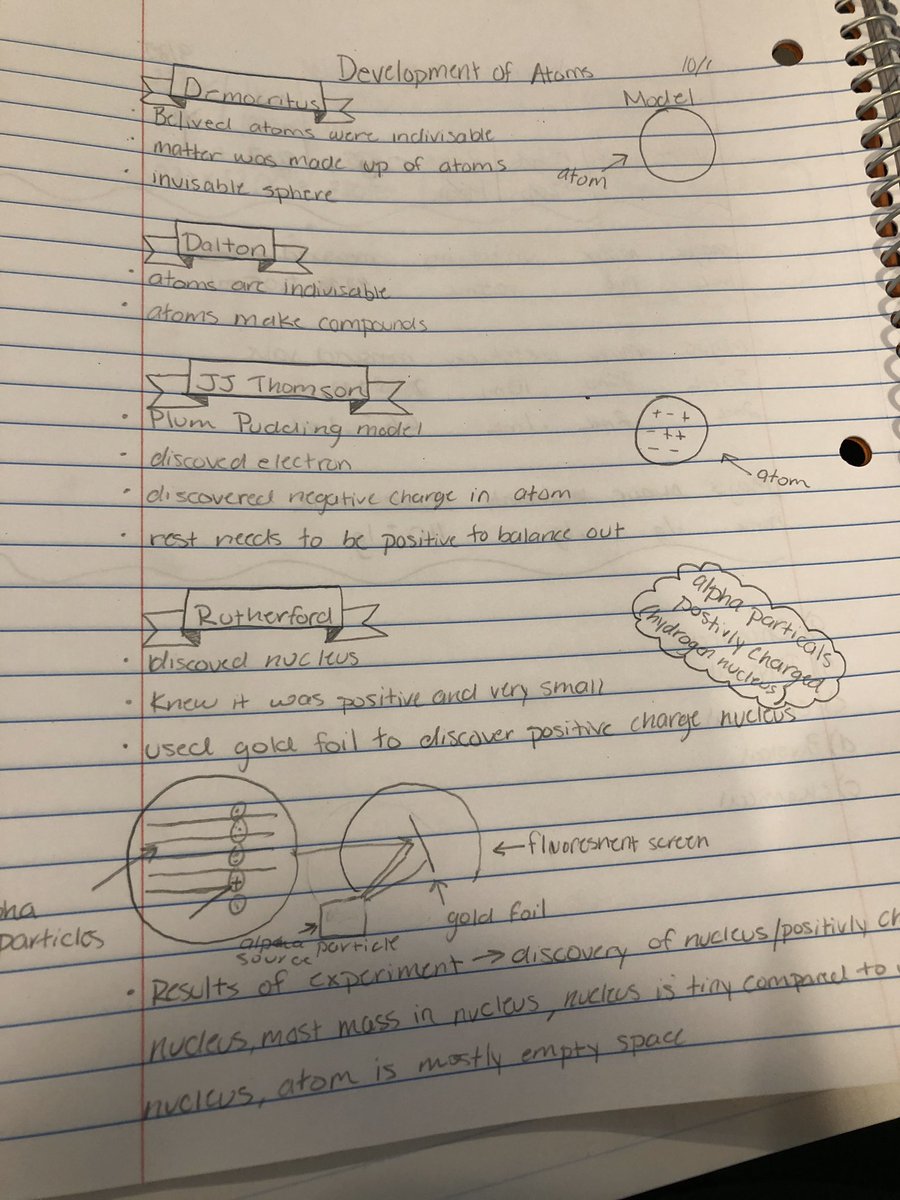 Development of Atoms 10/1
Democritus
Model
• Belived atoms were indivisable
• matter was made up of atoms
atom
• invisable sphere
Dalton
• atoms are indivisable
• atoms make compounds
JJ Thomson
• Plum Pudding model
+ - +
- + +
- -
atom
• discoved electron
• discovered negative charge in atom
• rest needs to be positive to balance out
alpha particals
Postivly charged
(hydrogen nucleus)
Rutherford
• discoved nucleus
• Knew it was positive and very small
• used gold foil to discover positive charge nucleus
+
fluoresnent screen
gold foil
pha
particles
alpha particle
source
• Results of experiment → discovery of nucleus/positivly ch
nucleus, most mass in nucleus, nucleus is tiny compared to
nucleus, atom is mostly empty space